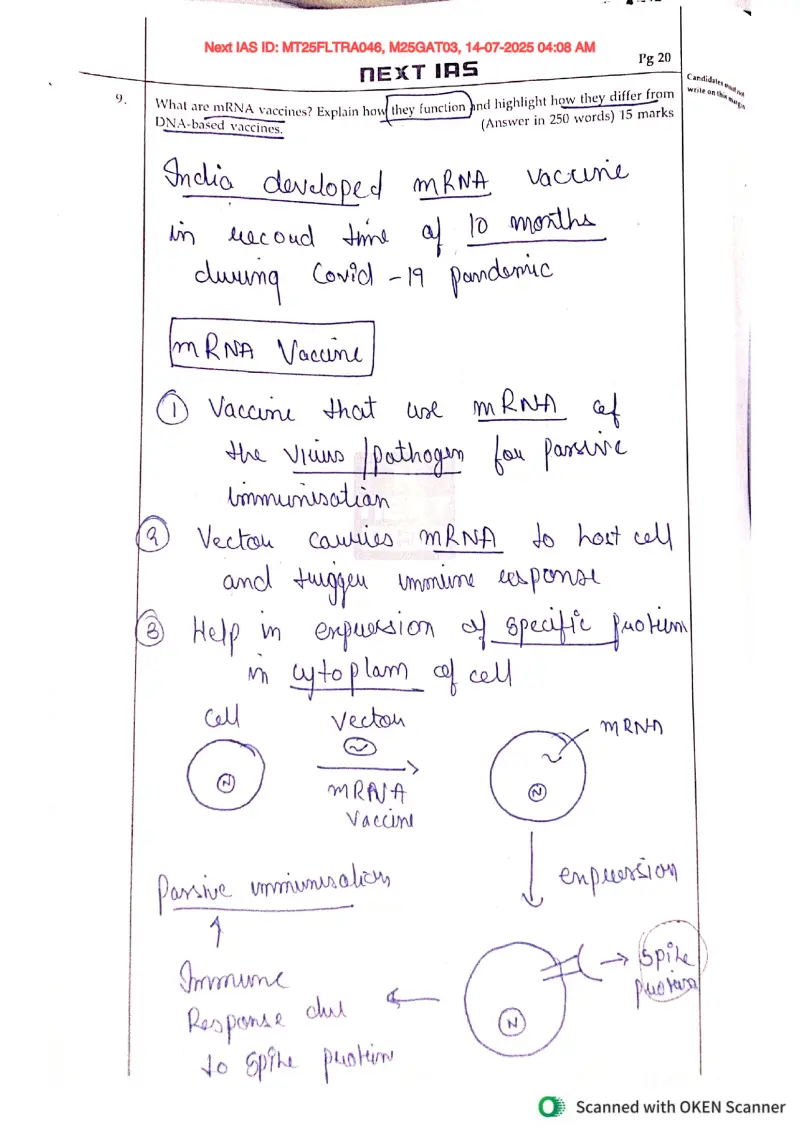 Next IAS ID: MT25FLTRA046, M25GAT03, 14-07-2025 04:08 AM
NEXT IAS
Pg 20
Candidates must not
write on this margin
9.
What are mRNA vaccines? Explain how they function and highlight how they differ from
DNA-based vaccines.
(Answer in 250 words) 15 marks
India developed mRNA vaccine
in record time of 10 months
during Covid-19 pandemic
mRNA Vaccine
① Vaccine that use mRNA of
the virus/pathogen for passive
immunisation
② Vector carries mRNA to host cell
and trigger immune response
③ Help in expression of specific protein
in cytoplam of cell
Cell
Vector
mRNA
N
mRNA
Vaccine
N
expression
Passive immunisation
Spike
protein
Immune
Response due
to spike protein
N
Scanned with OKEN Scanner